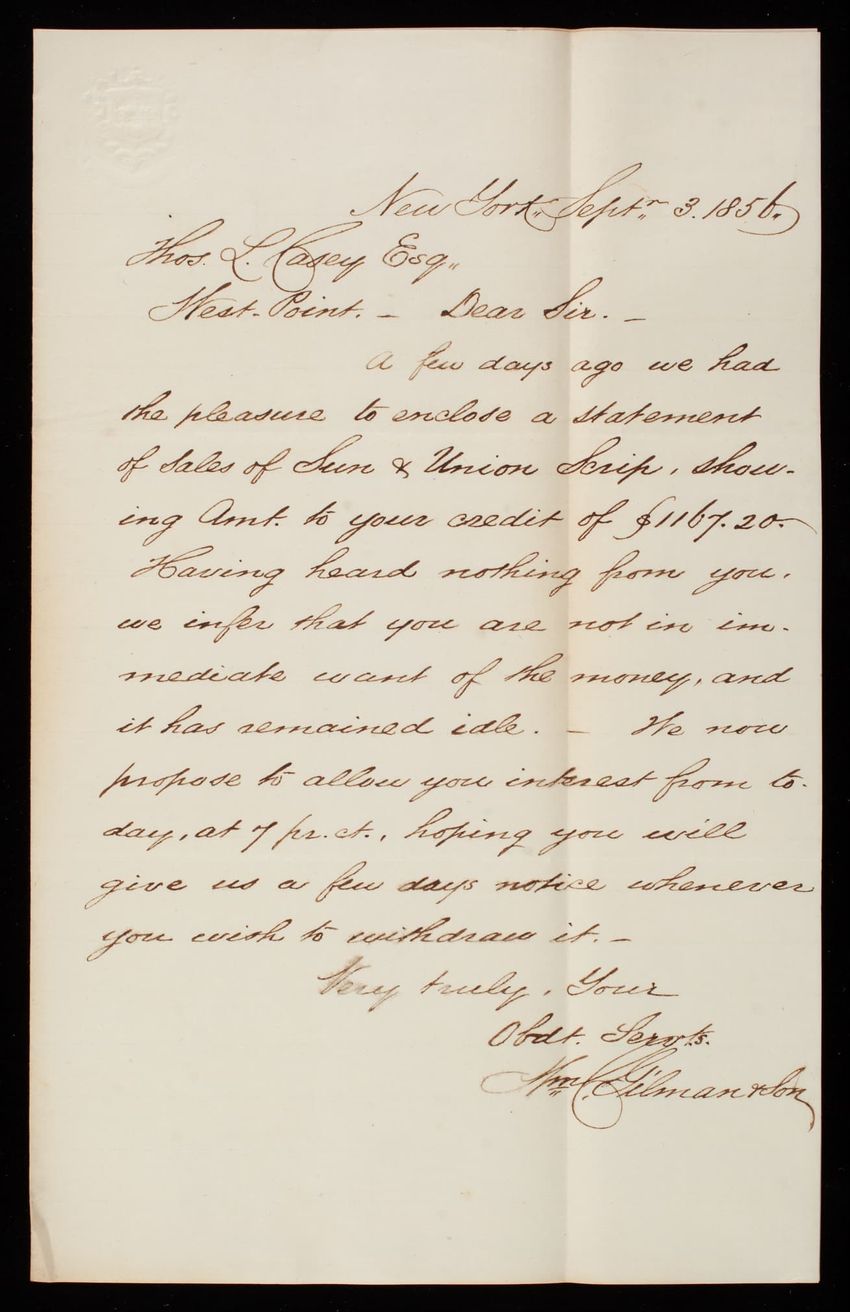 New York, Septr 3. 1856.
Thos. L. Casey Esq.
West-Point. - Dear Sir. -
A few days ago we had
the pleasure to enclose a statement
of sales of Sun & Union Scrip, show-
ing Amt. to your credit of $1167.20.-
Having heard nothing from you,
we infer that you are not in im-
mediate want of the money, and
it has remained idle. - We now
propose to allow you interest from to-
day, at 7 pr. ct., hoping you will
give us a few days notice whenever
you wish to withdraw it. -
Very truly, Your
Obdt. Servts.
Wm C. Gilman & Son